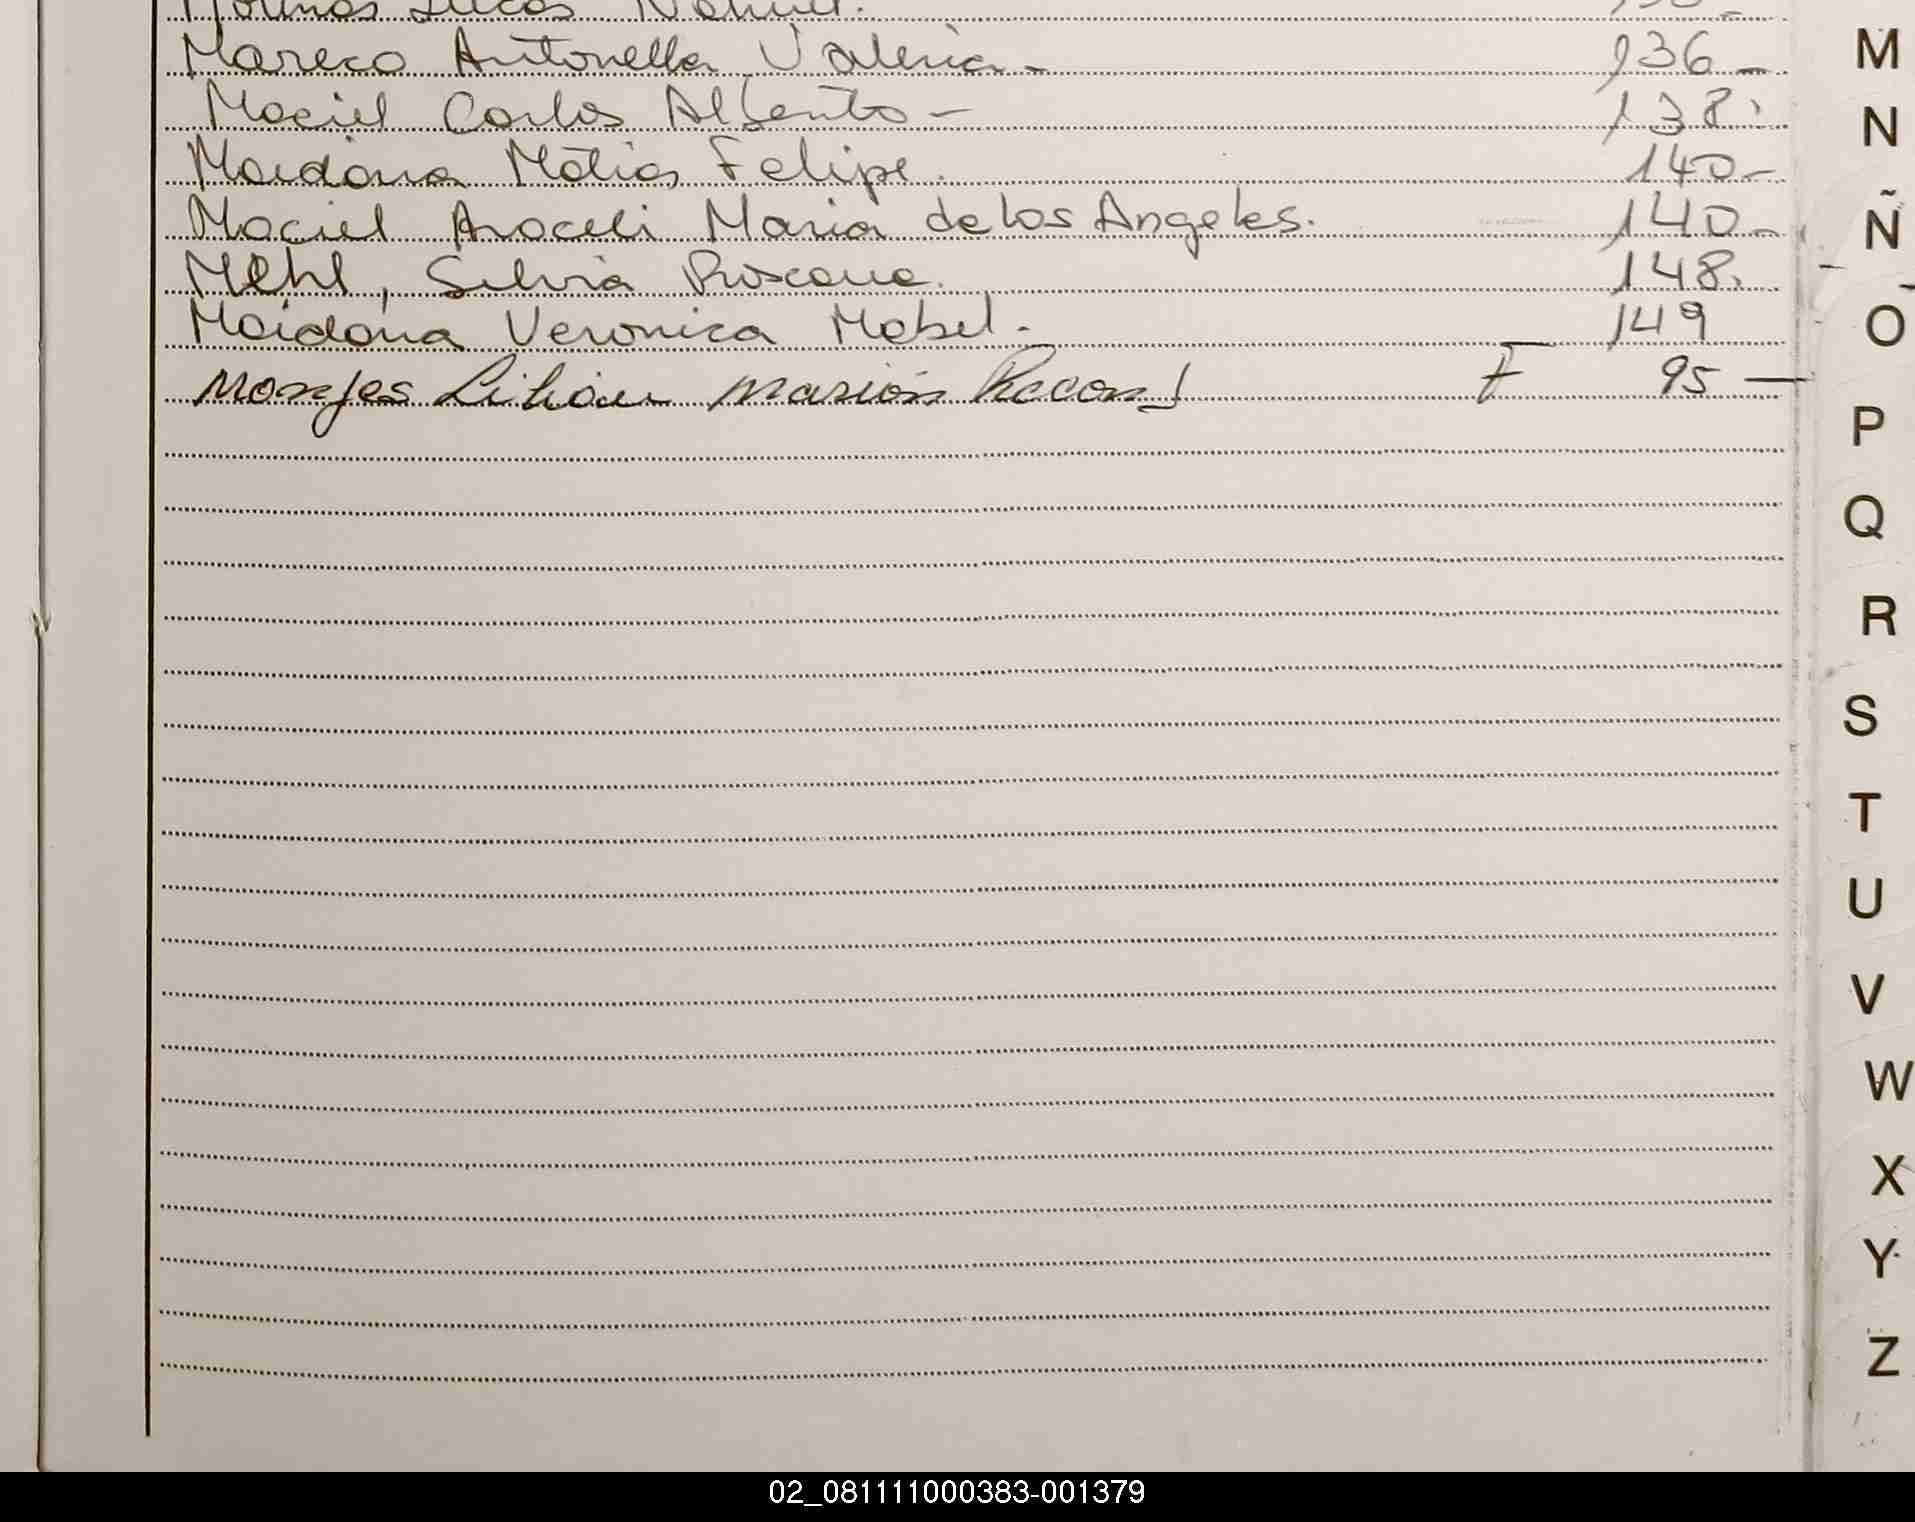 Lucas Nahuel.
Mareco Antonella Valeria - 136 -
Maciel Carlos Alberto - 138.
Maidana Matias Felipe. 140 -
Maciel Araceli Maria de los Angeles. 140 -
Mehl, Silvia Roxana. 148.
Maidana Veronica Mabel. 149
Monjes Lilian Marion F 95 —
M
N
Ñ
O
P
Q
R
S
T
U
V
W
X
Y
Z
02_081111000383-001379